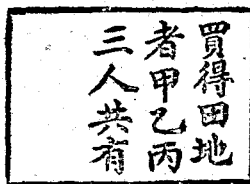 買得田地
者甲乙丙
三人共有